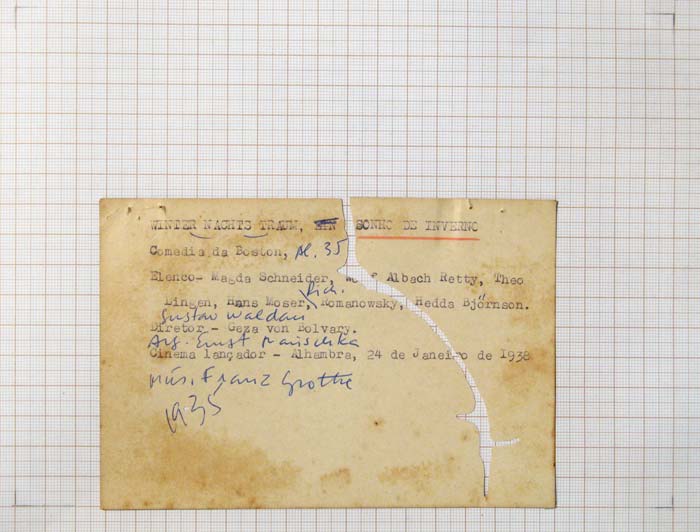 WINTER NACHTS TRAUM, EIN SONHO DE INVERNO
Comedia da Boston, Al. 35
Elenco- Magda Schneider, Wolf Albach Retty, Theo
Rich.
Lingen, Hans Moser, Romanowsky, Hedda Björnson.
Gustav Waldau
Diretor - Geza von Bolvary.
Arg. Ernst Marischka
Cinema lançador - Alhambra, 24 de Janeiro de 1938
mús. Franz Grothe
1935